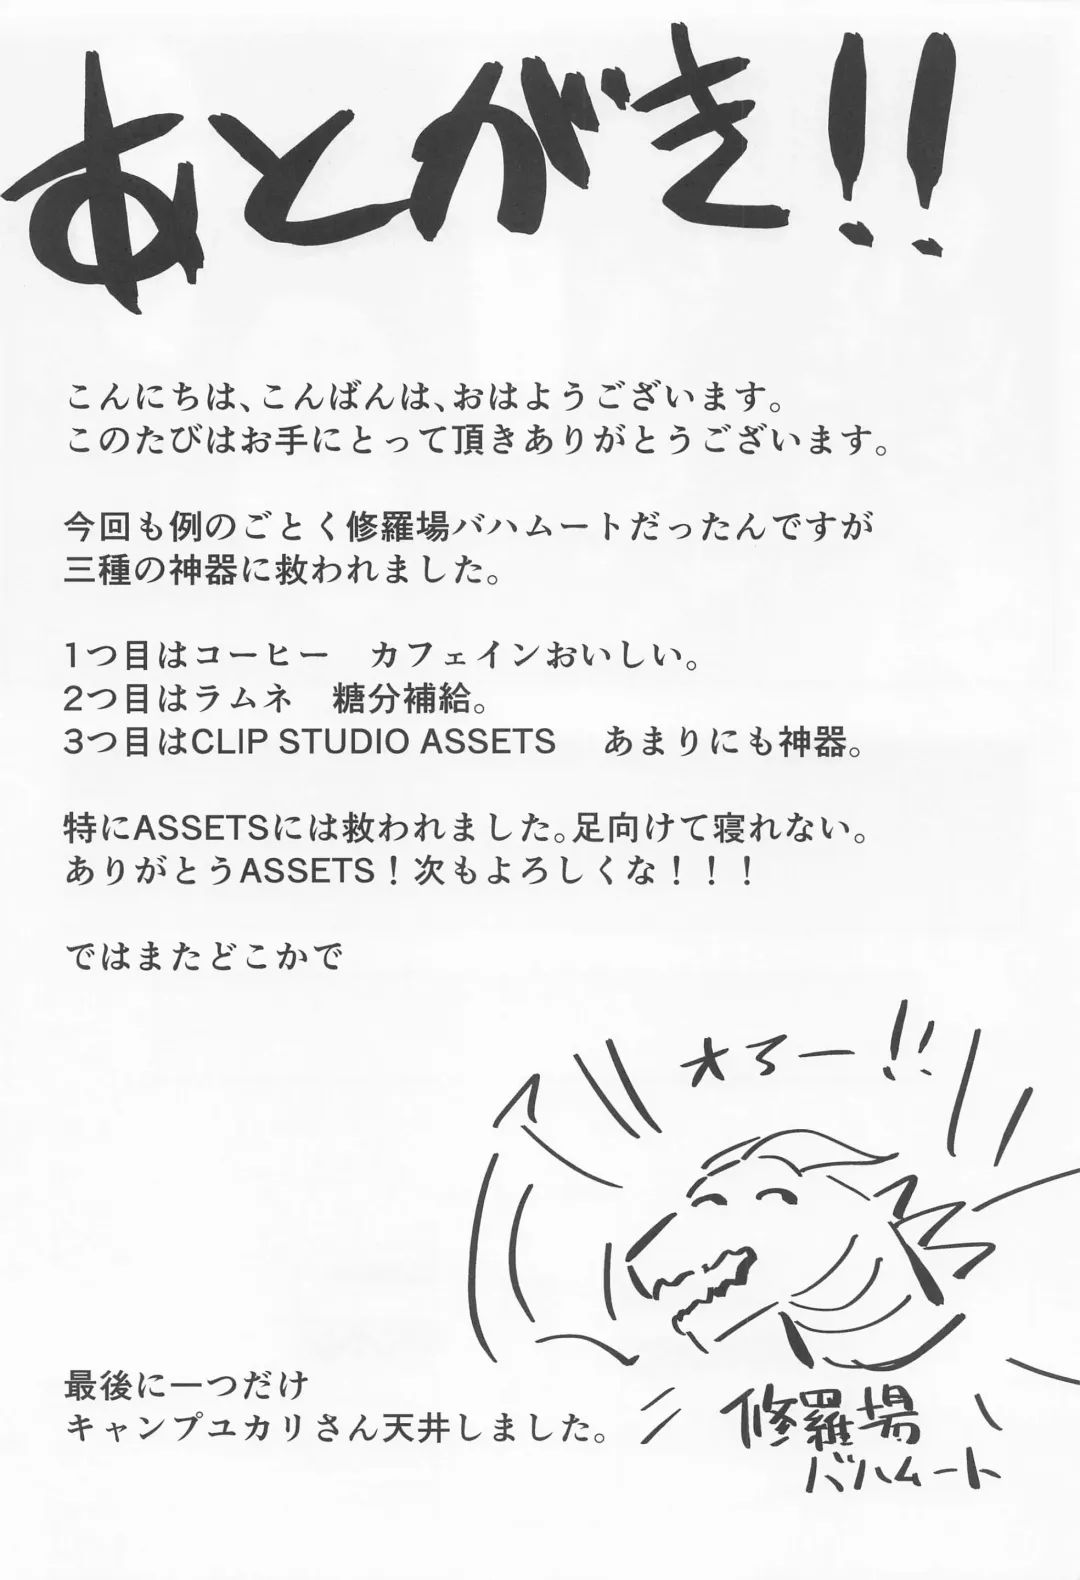 あとがき!!
こんにちは、こんばんは、おはようございます。
このたびはお手にとって頂きありがとうございます。
今回も例のごとく修羅場バハムートだったんですが
三種の神器に救われました。
1つ目はコーヒー　カフェインおいしい。
2つ目はラムネ　糖分補給。
3つ目はCLIP STUDIO ASSETS　あまりにも神器。
特にASSETSには救われました。足向けて寝れない。
ありがとうASSETS！次もよろしくな！！！
ではまたどこかで
オろー!!
最後に一つだけ
キャンプユカリさん天井しました。
修羅場
バハムート